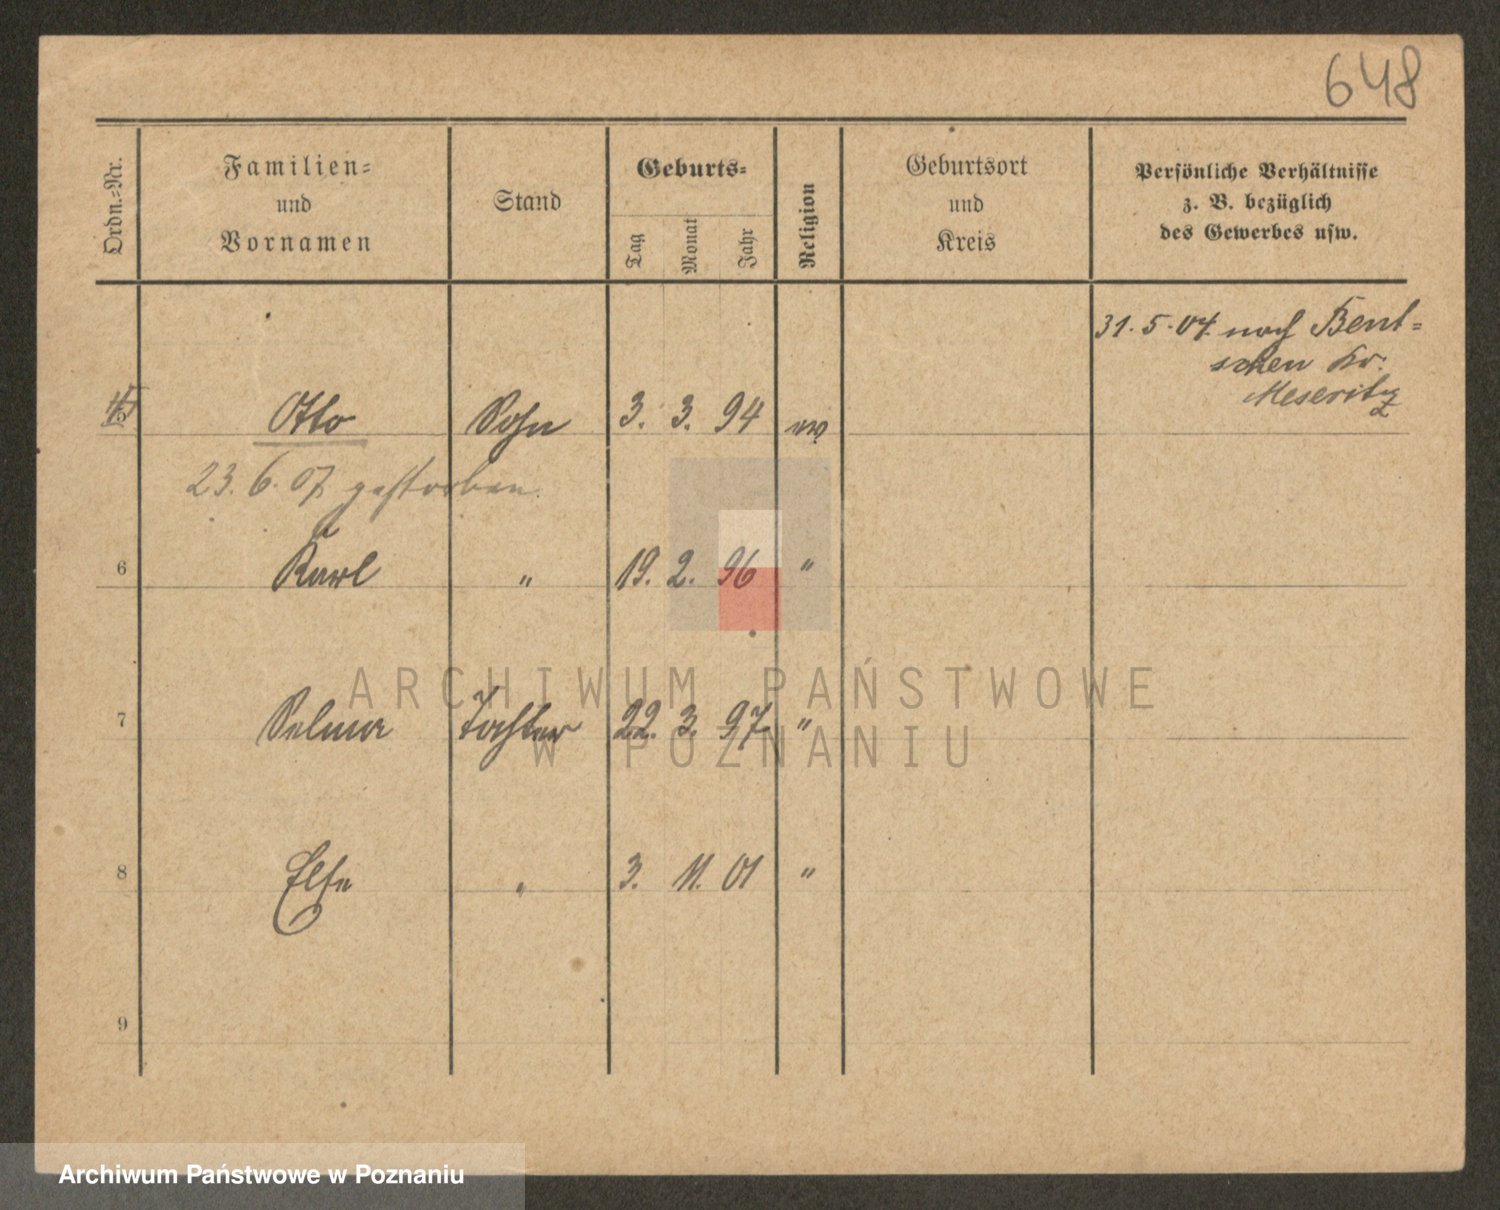 648
Ordn.-Nr.
Familien-
und
Vornamen
Stand
Geburts-
Tag
Monat
Jahr
Religion
Geburtsort
und
Kreis
Persönliche Verhältnisse
z. B. bezüglich
des Gewerbes usw.
31. 5. 04. nach Bent-
schen Kr.
Meseritz
5 Otto Sohn 3. 3. 94 ev
23. 6. 07 gestorben.
6 Karl " 19. 2. 96 "
ARCHIWUM PAŃSTWOWE
7 Selma Tochter 22. 3. 97. "
W POZNANIU
8 Else " 3. 11. 01 "
9
Archiwum Państwowe w Poznaniu